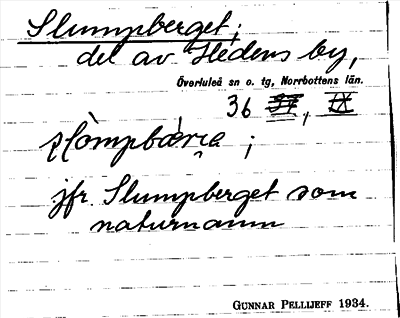 Slumpberget;
del av Hedens by,
Överluleå sn o. tg, Norrbottens län.
36
;
jfr. Slumpberget som
naturnamn
GUNNAR PELLIJEFF 1934.